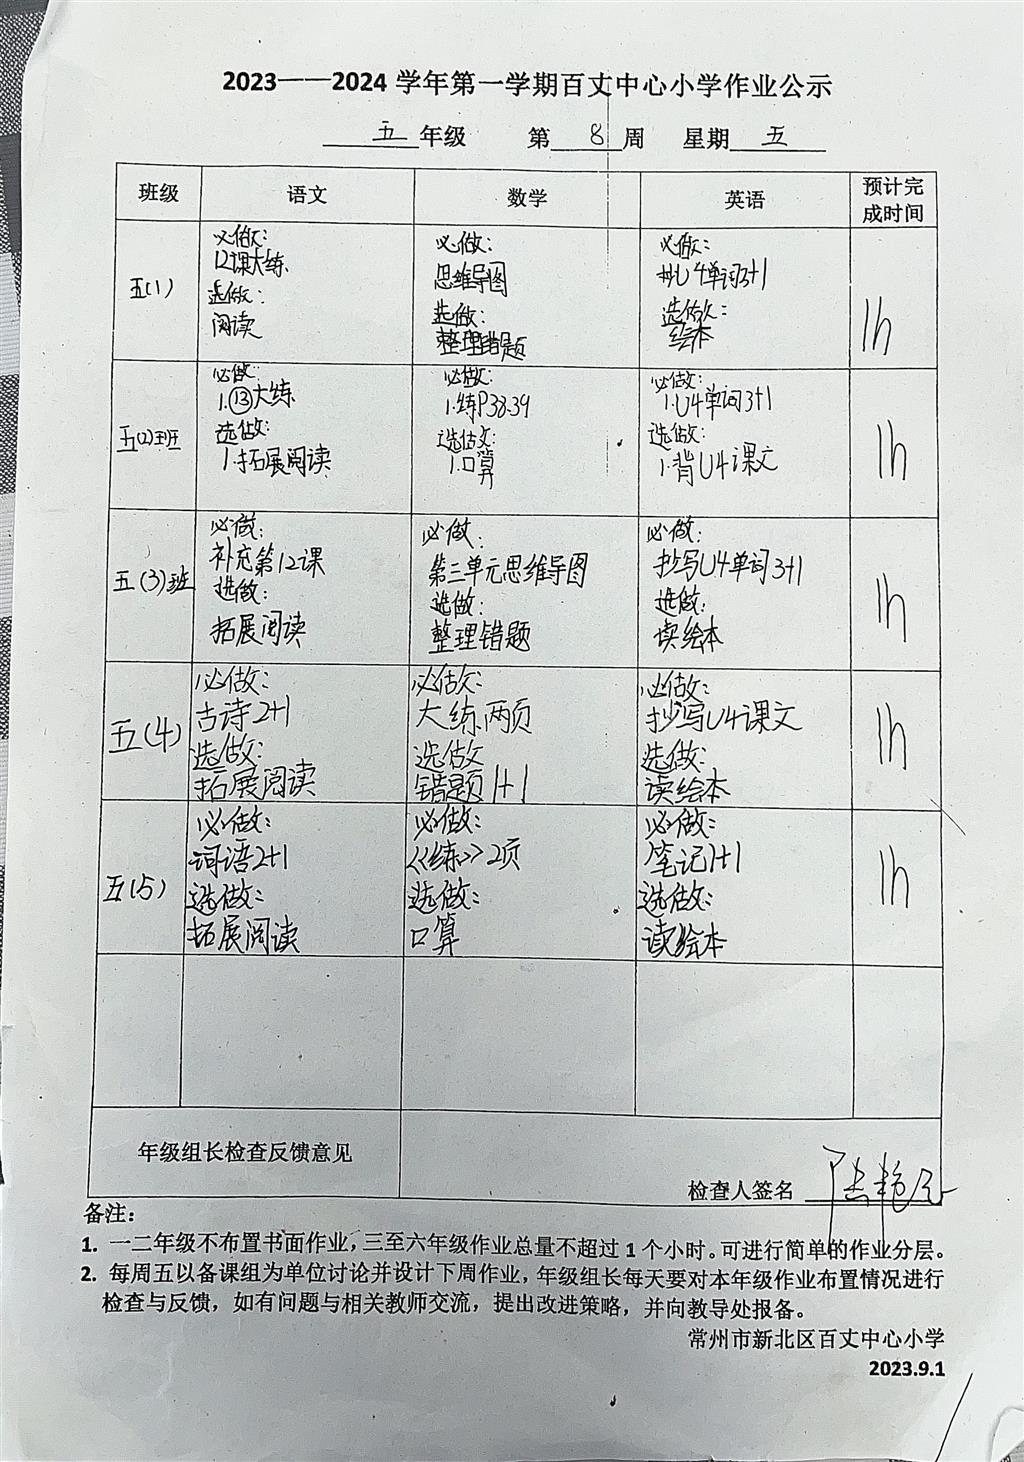 2023——2024 学年第一学期百丈中心小学作业公示
五 年级 第 8 周 星期 五
班级 语文 数学 英语 预计完成时间
五(1)
必做:
12课大练
选做:
阅读
必做:
思维导图
选做:
整理错题
必做:
抄U4单词3+1
选做:
绘本
1h
五(2)班
必做:
1.⑬大练
选做:
1.拓展阅读
必做:
1.练P38.39
选做:
1.口算
必做:
1.U4单词3+1
选做:
1.背U4课文
1h
五(3)班
必做:
补充第12课
选做:
拓展阅读
必做:
第三单元思维导图
选做:
整理错题
必做:
抄写U4单词3+1
选做:
读绘本
1h
五(4)
必做:
古诗2+1
选做:
拓展阅读
必做:
大练两页
选做
错题1+1
必做:
抄写U4课文
选做:
读绘本
1h
五(5)
必做:
词语2+1
选做:
拓展阅读
必做:
《练》2页
选做:
口算
必做:
笔记1+1
选做:
读绘本
1h
年级组长检查反馈意见
检查人签名
备注:
1. 一二年级不布置书面作业,三至六年级作业总量不超过 1 个小时。可进行简单的作业分层。
2. 每周五以备课组为单位讨论并设计下周作业,年级组长每天要对本年级作业布置情况进行
检查与反馈,如有问题与相关教师交流,提出改进策略,并向教导处报备。
常州市新北区百丈中心小学
2023.9.1